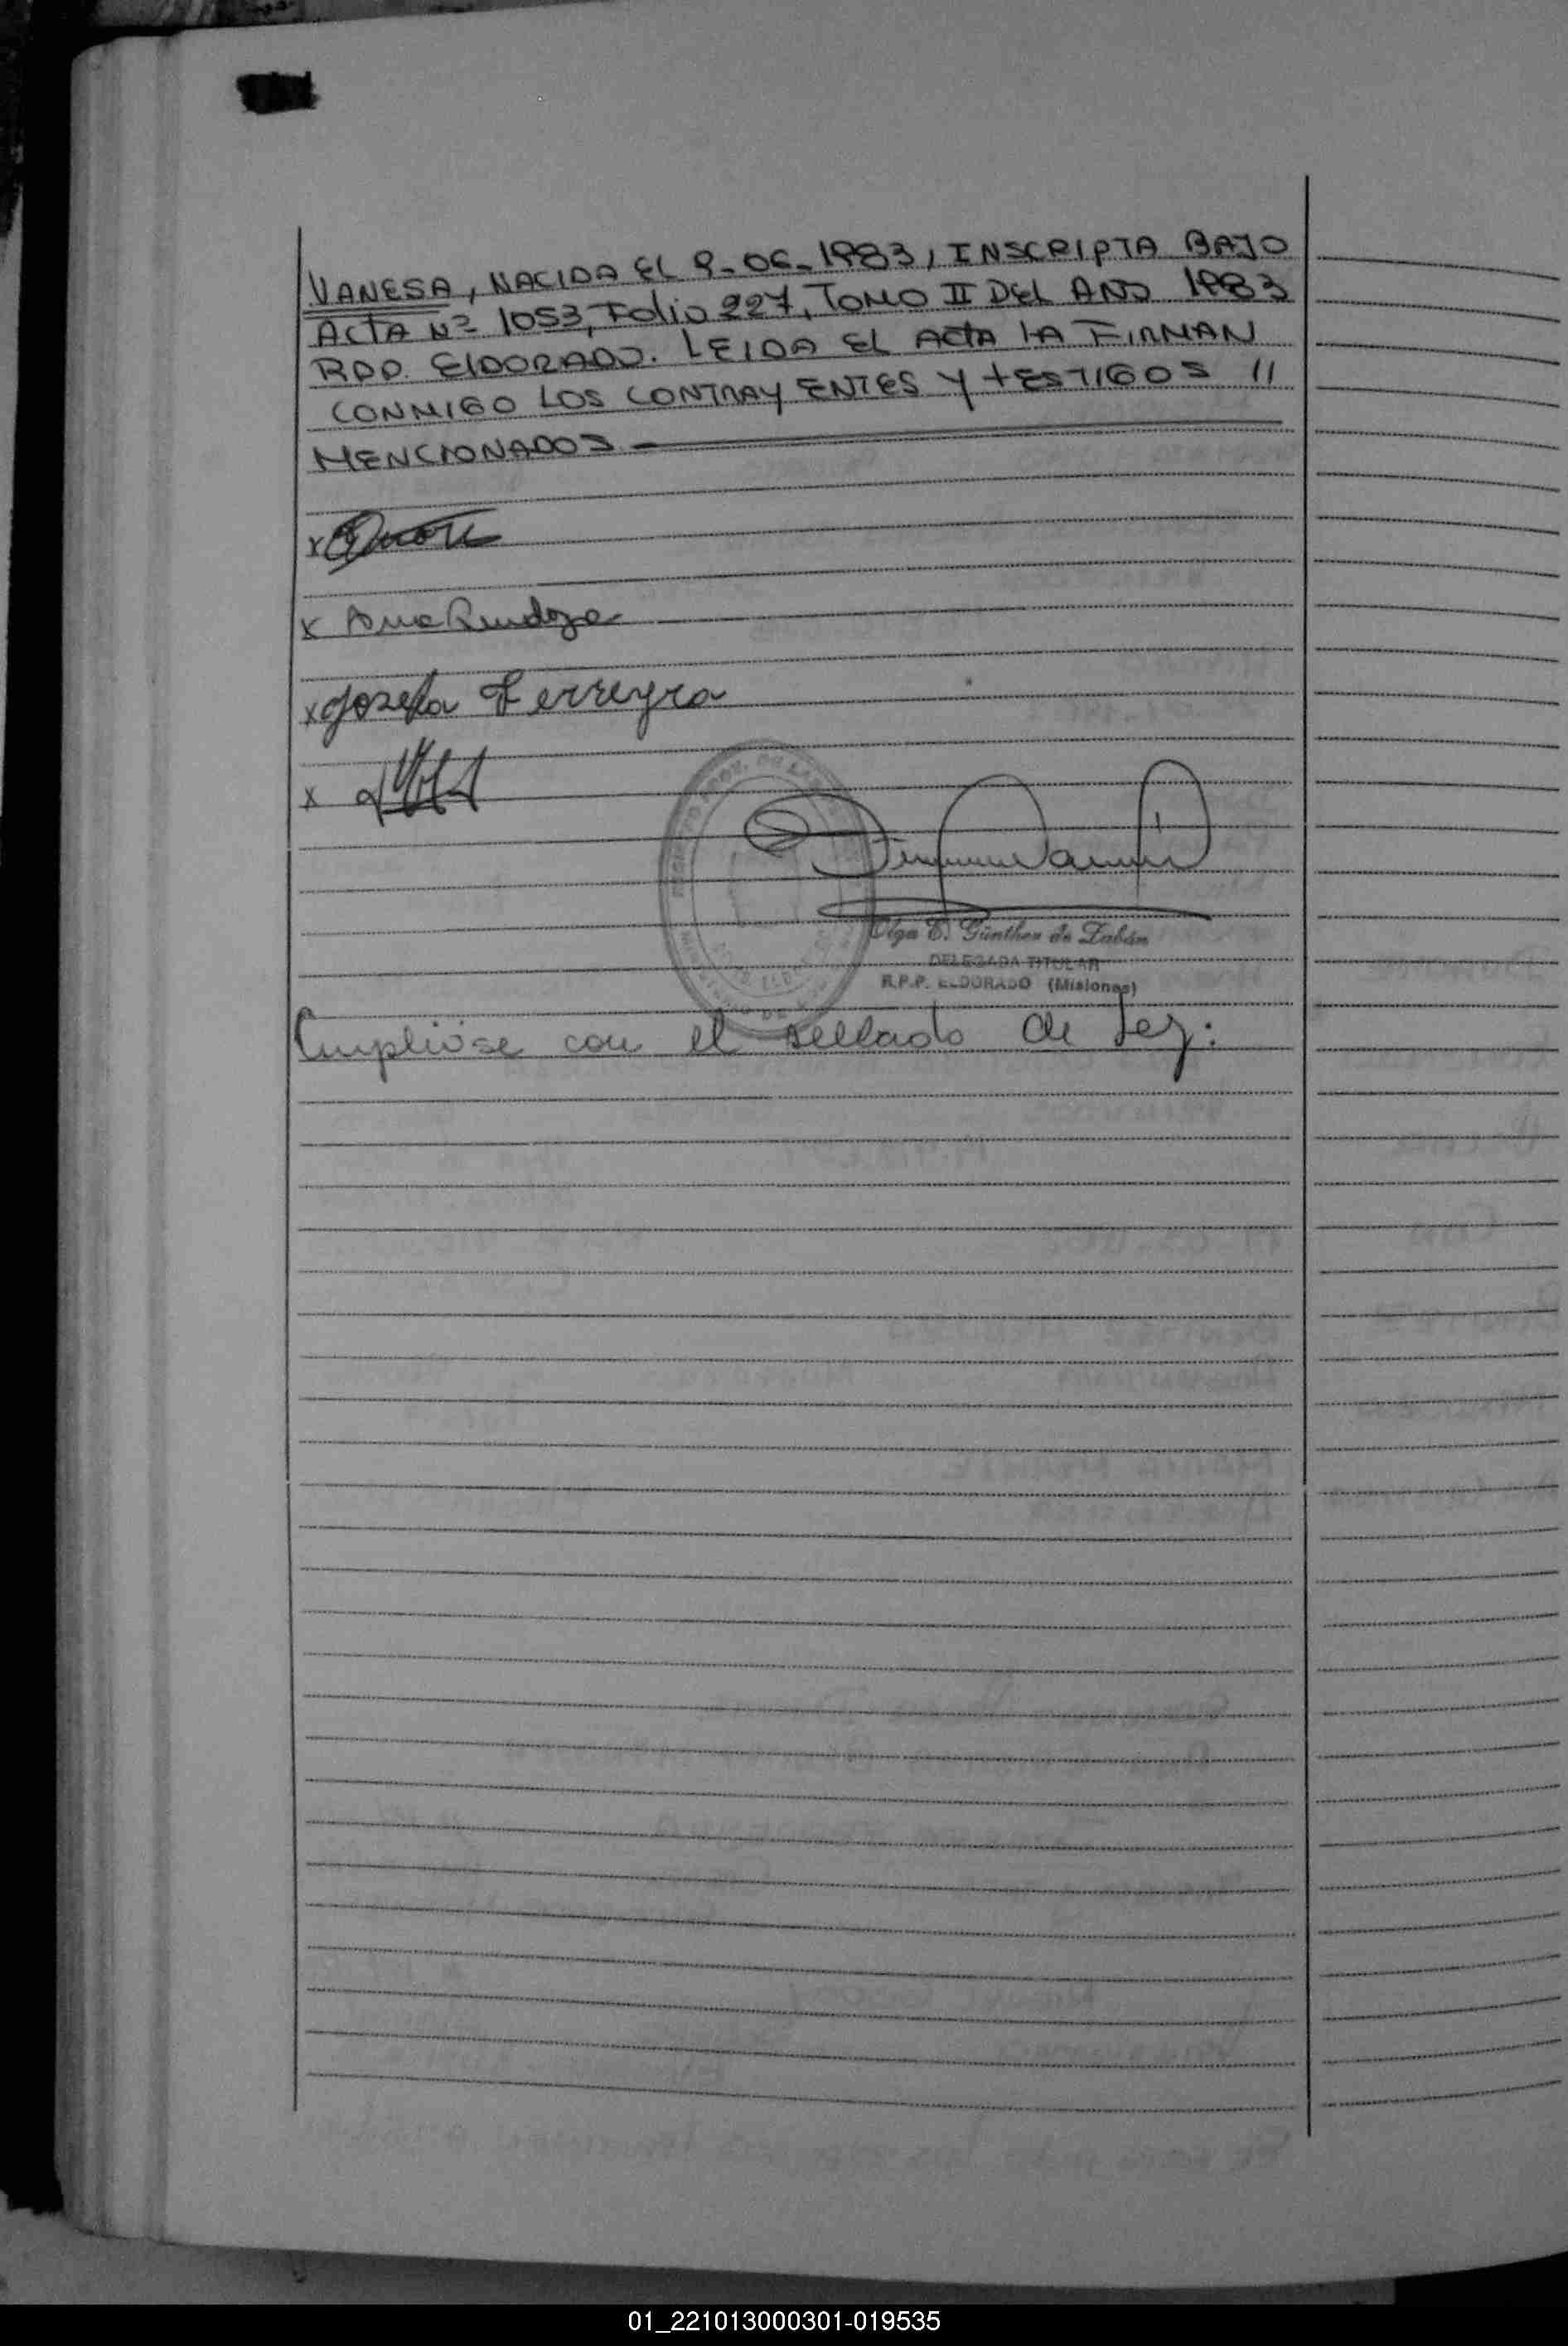 VANESA, NACIDA EL 9-06-1983, INSCRIPTA BAJO
ACTA Nº 1053, Folio 227, TOMO II DEL AÑO 1983
RPP. ElDORADO. LEIDA EL ACTA LA FIRMAN
CONMIGO LOS CONTRAYENTES Y TESTIGOS //
MENCIONADOS
x
x Ana
x Josefa Ferreyra
x
Olga E. Günther de Zabán
DELEGADA TITULAR
R.P.P. ELDORADO (Misiones)
Cumplióse con el sellado de Ley:
01_221013000301-019535